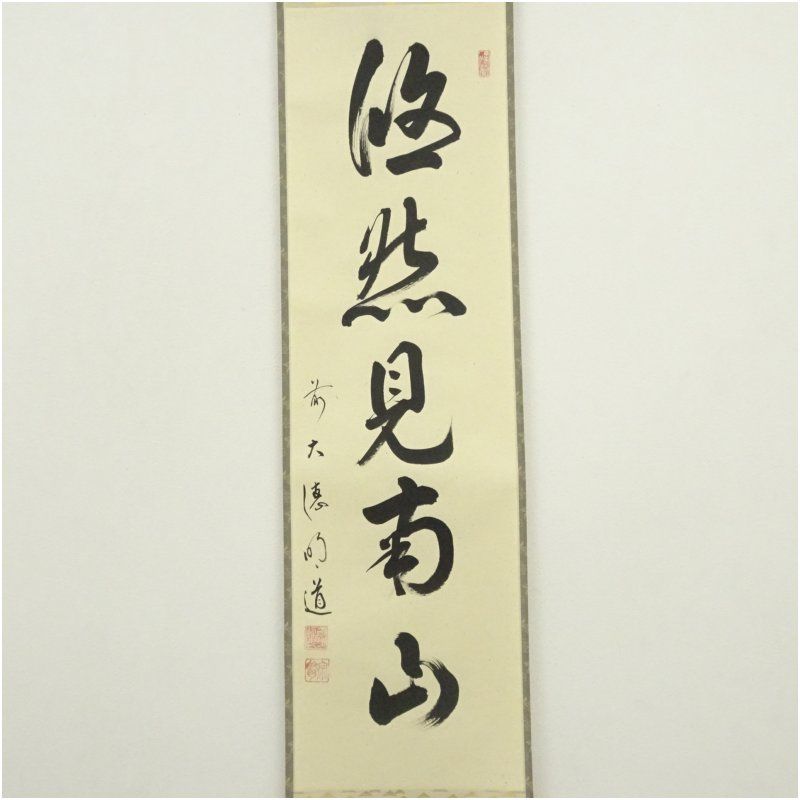 悠然見南山
前大徳明道